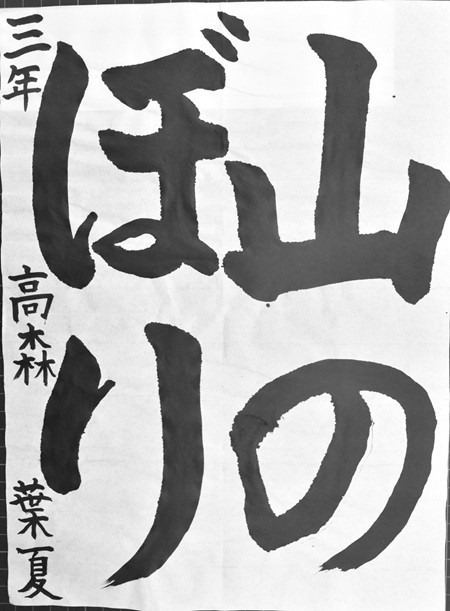 山の
ぼり
三年 高森 葉夏